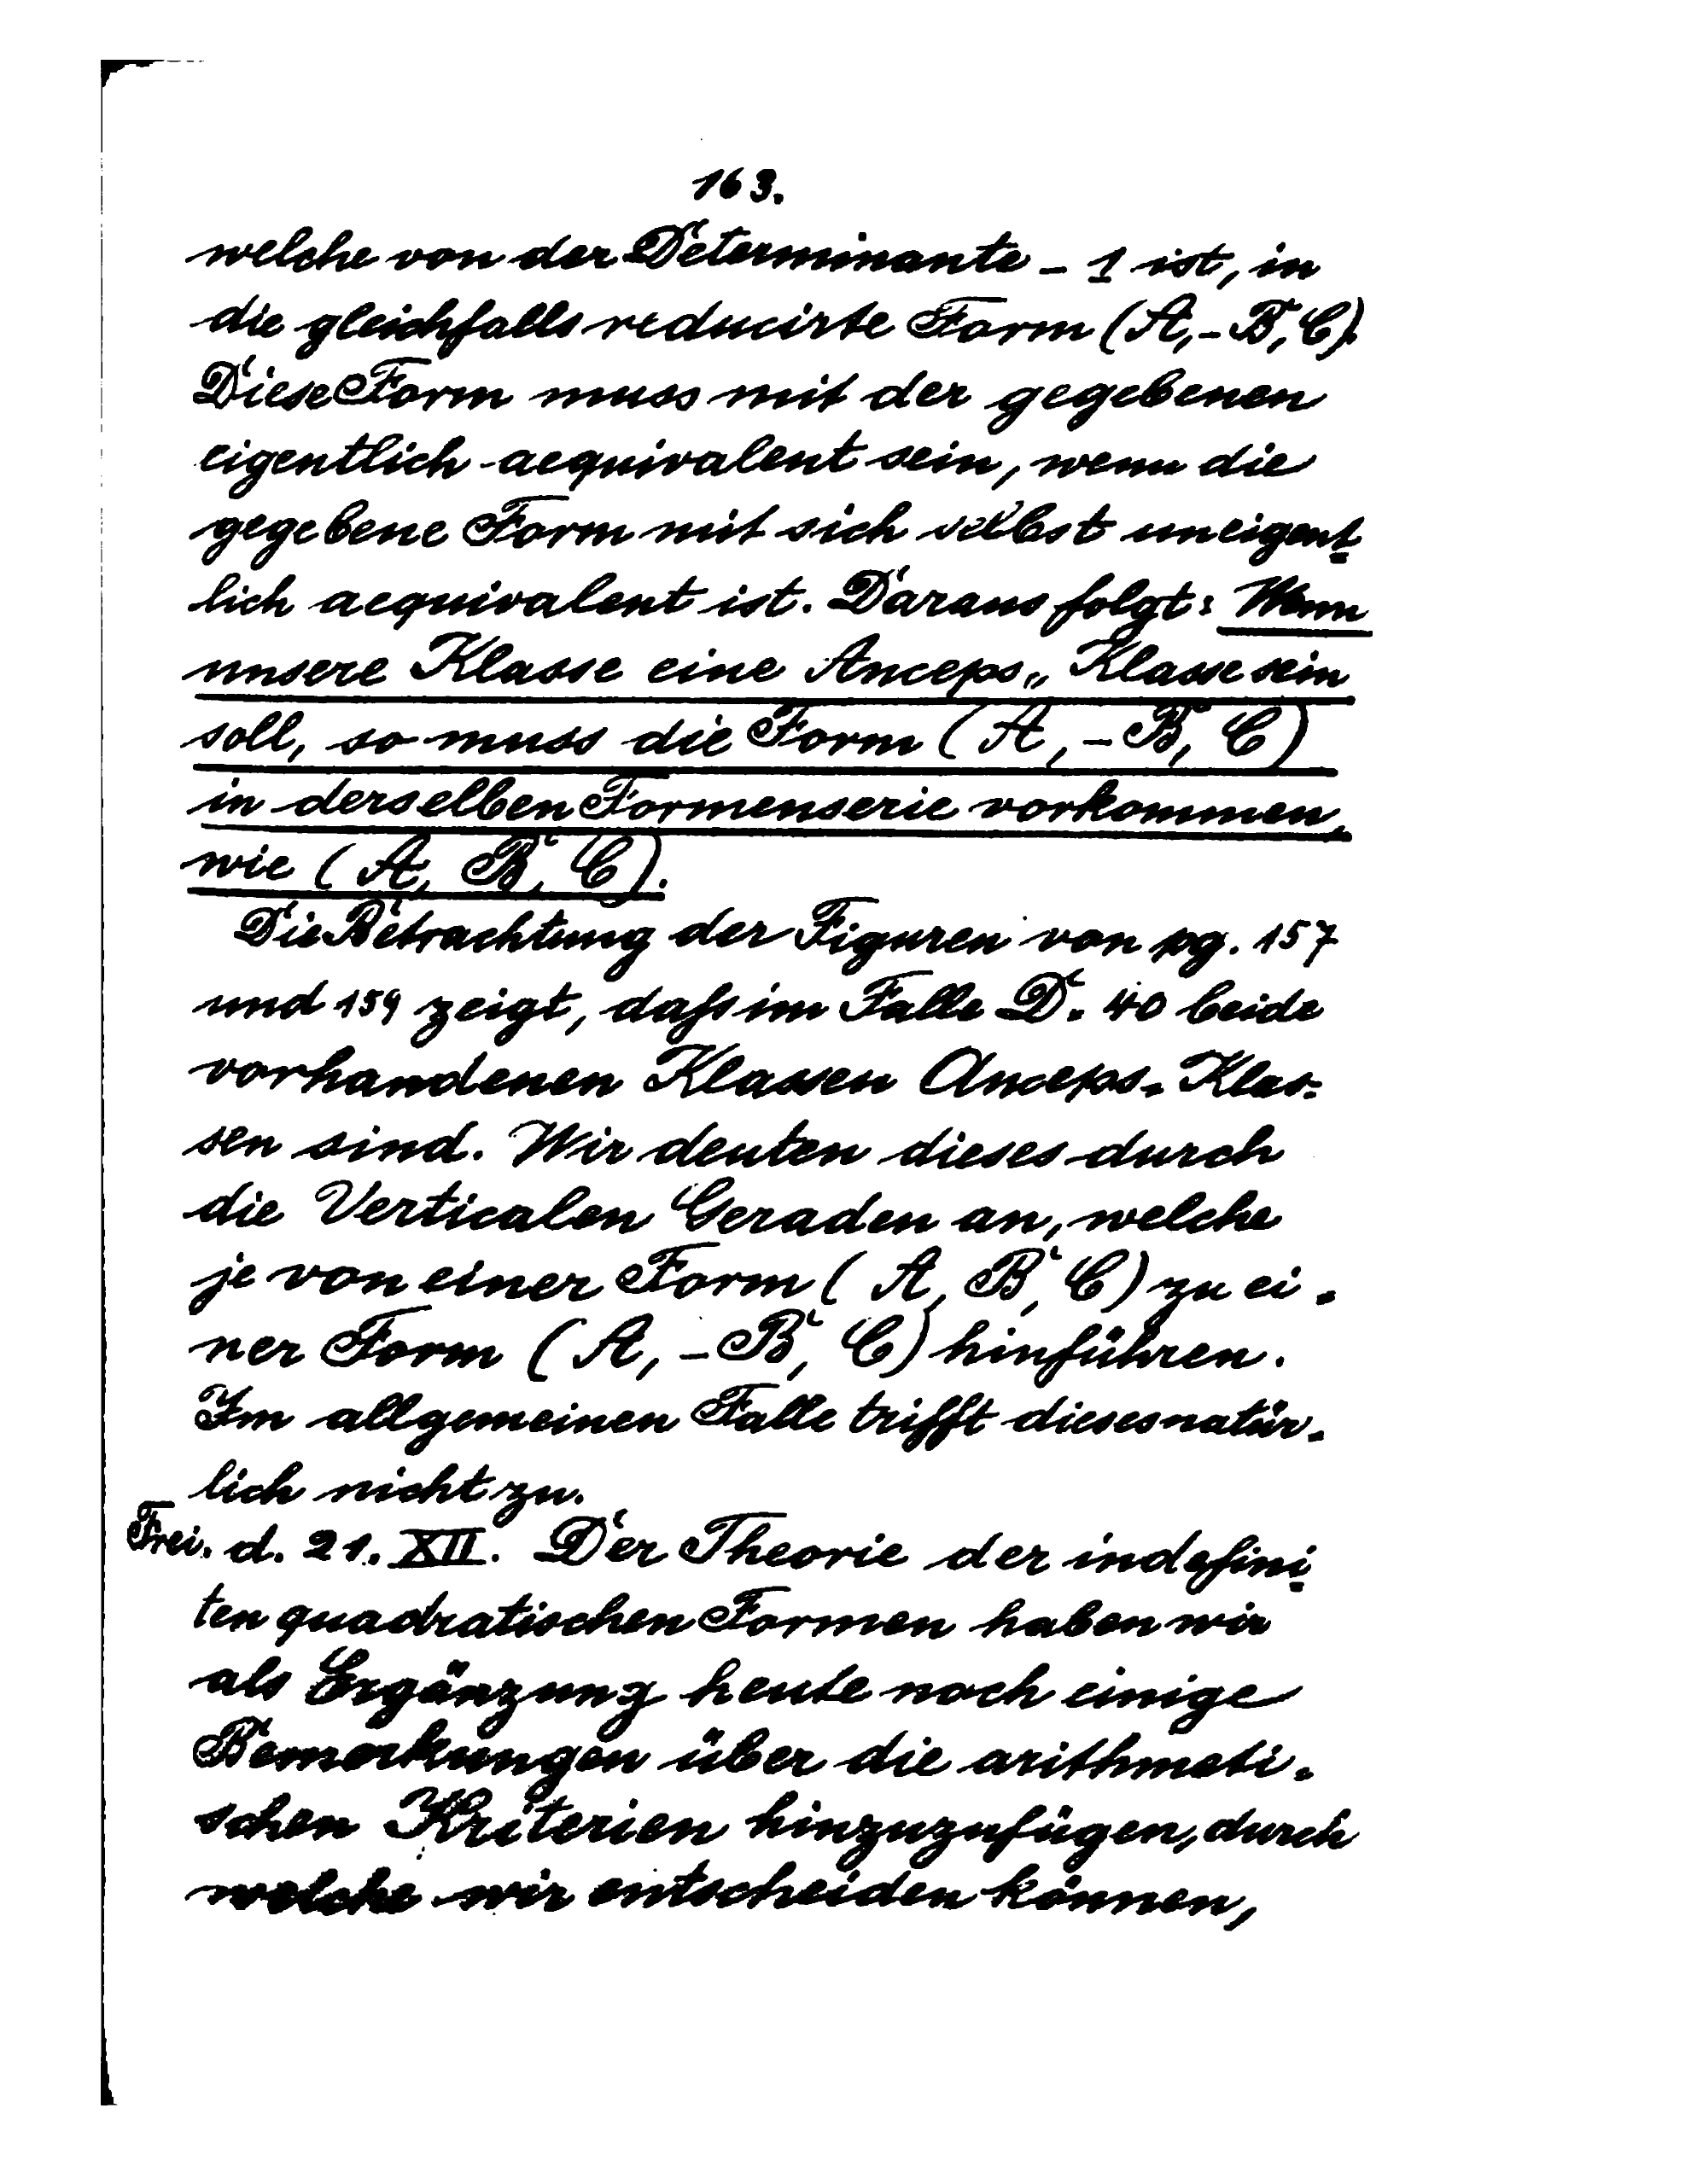 163.
welche von der Determinante - 1 ist, in
die gleichfalls reducirte Form (A, -B, C).
Diese Form muss mit der gegebenen
eigentlich aequivalent sein, wenn die
gegebene Form mit sich selbst uneigent-
lich aequivalent ist. Daraus folgt: Wenn
unsere Klasse eine Anceps-Klasse sein
soll, so muss die Form (A, -B, C)
in derselben Formenserie vorkommen,
wie (A, B, C).
Die Betrachtung der Figuren von pg. 157
und 159 zeigt, daſs im Falle D = 40 beide
vorhandenen Klassen Anceps-Klas-
sen sind. Wir deuten dieses durch
die Verticalen Geraden an, welche
je von einer Form (A, B, C) zu ei-
ner Form (A, -B, C) hinführen.
Im allgemeinen Falle trifft dieses natür-
lich nicht zu.
Frei. d. 21. XII. Der Theorie der indefini-
ten quadratischen Formen haben wir
als Ergänzung heute noch einige
Bemerkungen über die arithmeti-
schen Kriterien hinzuzufügen, durch
welche wir entscheiden können,